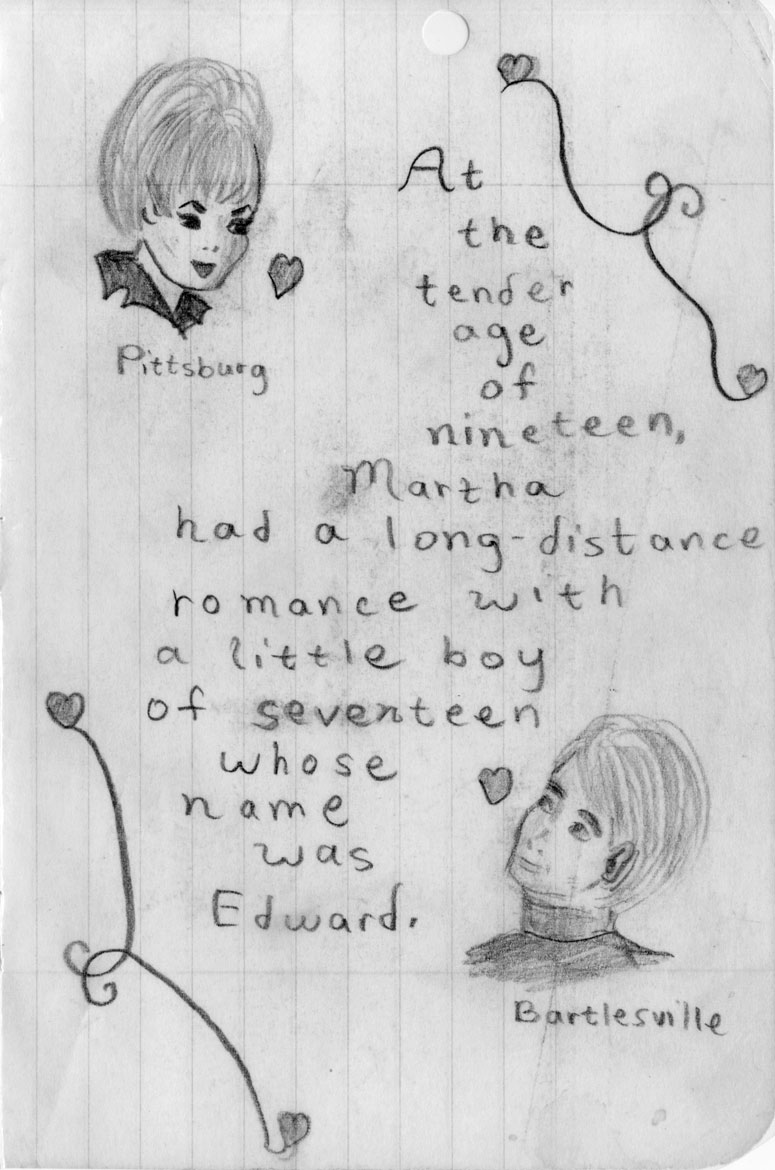 At
the
tender
age
of
nineteen,
Martha
had a long-distance
romance with
a little boy
of seventeen
whose
name
was
Edward.
Pittsburg
Bartlesville